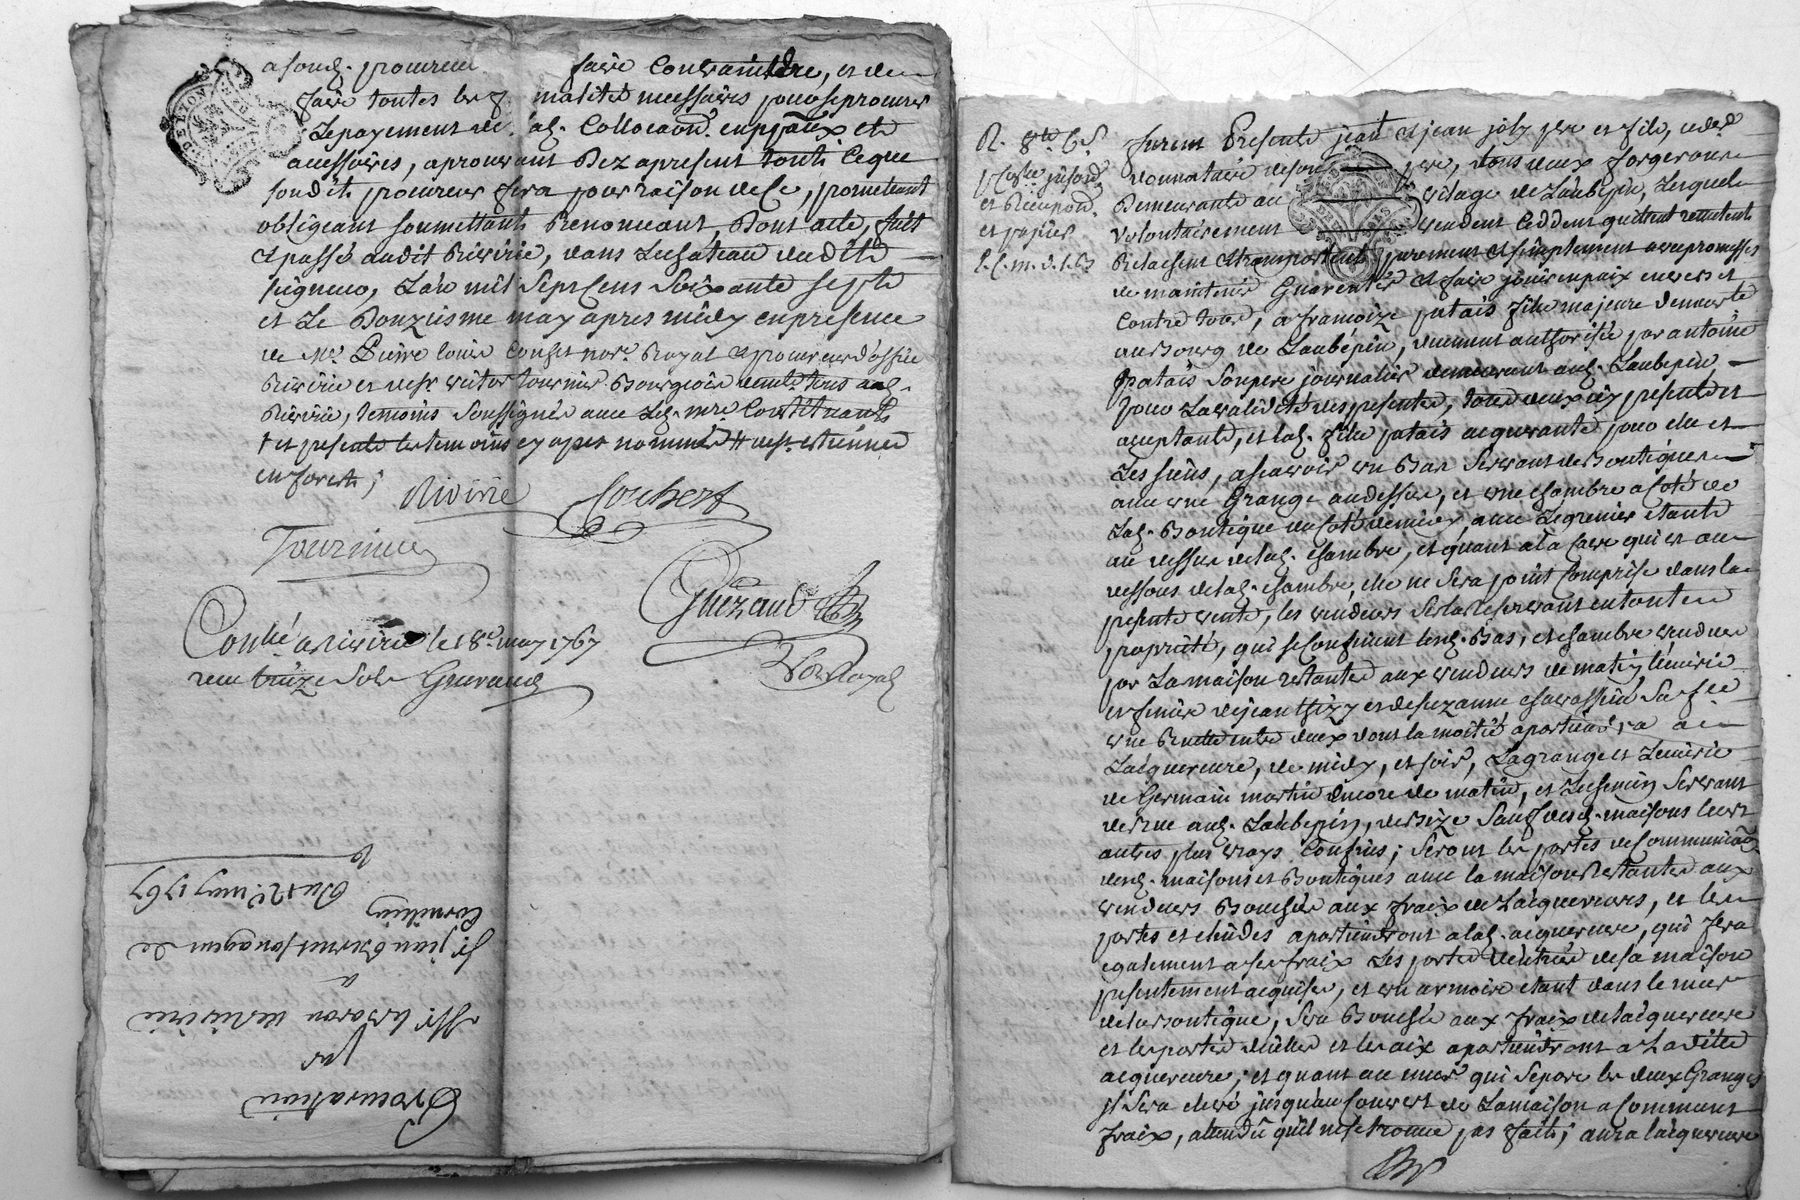 a sond. procureur faire contraindre, et de
faire toutes les f. malités nécessaires pour se procurer
Le payement de lad. Collocaõn. en ppãux et
accessoires, aprouvant Dez apresent tout Ceque
sondit procureur fera pour raison de Ce, prometeant
obligeant soumettant Renonceant, Dont acte, fait
et passé audit Riverie, dans Le château dudit
seigneur, L'an mil Sept Cens Soixante sept
et Le Douzieme may apres midy en presence
de Me. Pierre louis Consert nore. Royal et procureur d'office
Riverie et de sr victor tournier Bourgeois demts. tous aud.
Riverie, temoins Soussignés avec Led. mre. Constituant
et presents les temoins cy apres nommés
en forets;
Riverie
Tournier
Guerand
No. Royal
Conlé a riverie le 18e. may 1767
receu treize Sols Gueraud
Procuration
par
Mr. le Baron de Riverie
a
Sr. jean
Du 12e. may 1767
R. 8te. C. S.
et Recepon.
et papier
furent Presents jean et jean joly pere et fils, cedt.
donnataire de son pere, tous deux forgerons
Demeurants au vilage de Laubepin, Lesquels
volontairement vendent Ceddent quittent remetent
Relachent et transportent purement et simplement avec promesses
de maintenir Guarentir et faire jouir en paix envers et
Contre tous, a françoize patais fille majeure demeurte
au Bourg de Laubépin, duement authorisée par antoine
patais Son pere journalier demeurant aud. Laubepin,
pour La validité des presentes, tous deux icy presents et
acceptants, et lad. fille patais acquerante pour elle et
Les siens, ascavoir un Bas Servant de Boutique
avec une Grange au dessus, et une chambre a Coté de
Lad. Boutique du Coté de midy, avec Le grenier étant
au dessus de lad. chambre, et quant a la Cave qui est au
dessous de lad. chambre, elle ne Sera point Comprise dans la
presente vente, les vendeurs Se la Reservant en toute
proprieté, qui se Confinent lesd. Bas, et chambre vendues
par La maison restante aux vendeurs de matin, l'ecurie
et feniere de jean thizy et de suzanne chavassieu Sa fe.
une Ruette entre deux dont la moitié apartiendra a
L'acquereure, de midy, et soir, La grange et L'ecurie
de Germain martin encore de matin, et Le chemin Servant
de Rue aud. Laubepin, de bize Sauf desd. maisons leurs
autres plus vrays Confins; Seront les portes de Communicaõn
desd. maisons et Boutiques avec la maison Restante aux
vendeurs Bouchées aux fraix de L'acquereure, et les
portes et apartiendront a lad. acquereure, qui fera
egalement a ses fraix Les portes d'entrée de sa maison
presentement acquise, et une armoire etant dans le mur
de la Boutique, Sera Bouchée aux fraix de l'acquereure
et les portes d'icelles et les aix apartiendront a La dite
acquereure; et quant au mur qui Separe les deux Granges
il Sera elevé jusqu'au Couvert de La maison a Communs
fraix, attendu qu'il ne se trouve pas fait; aura l'acquereure